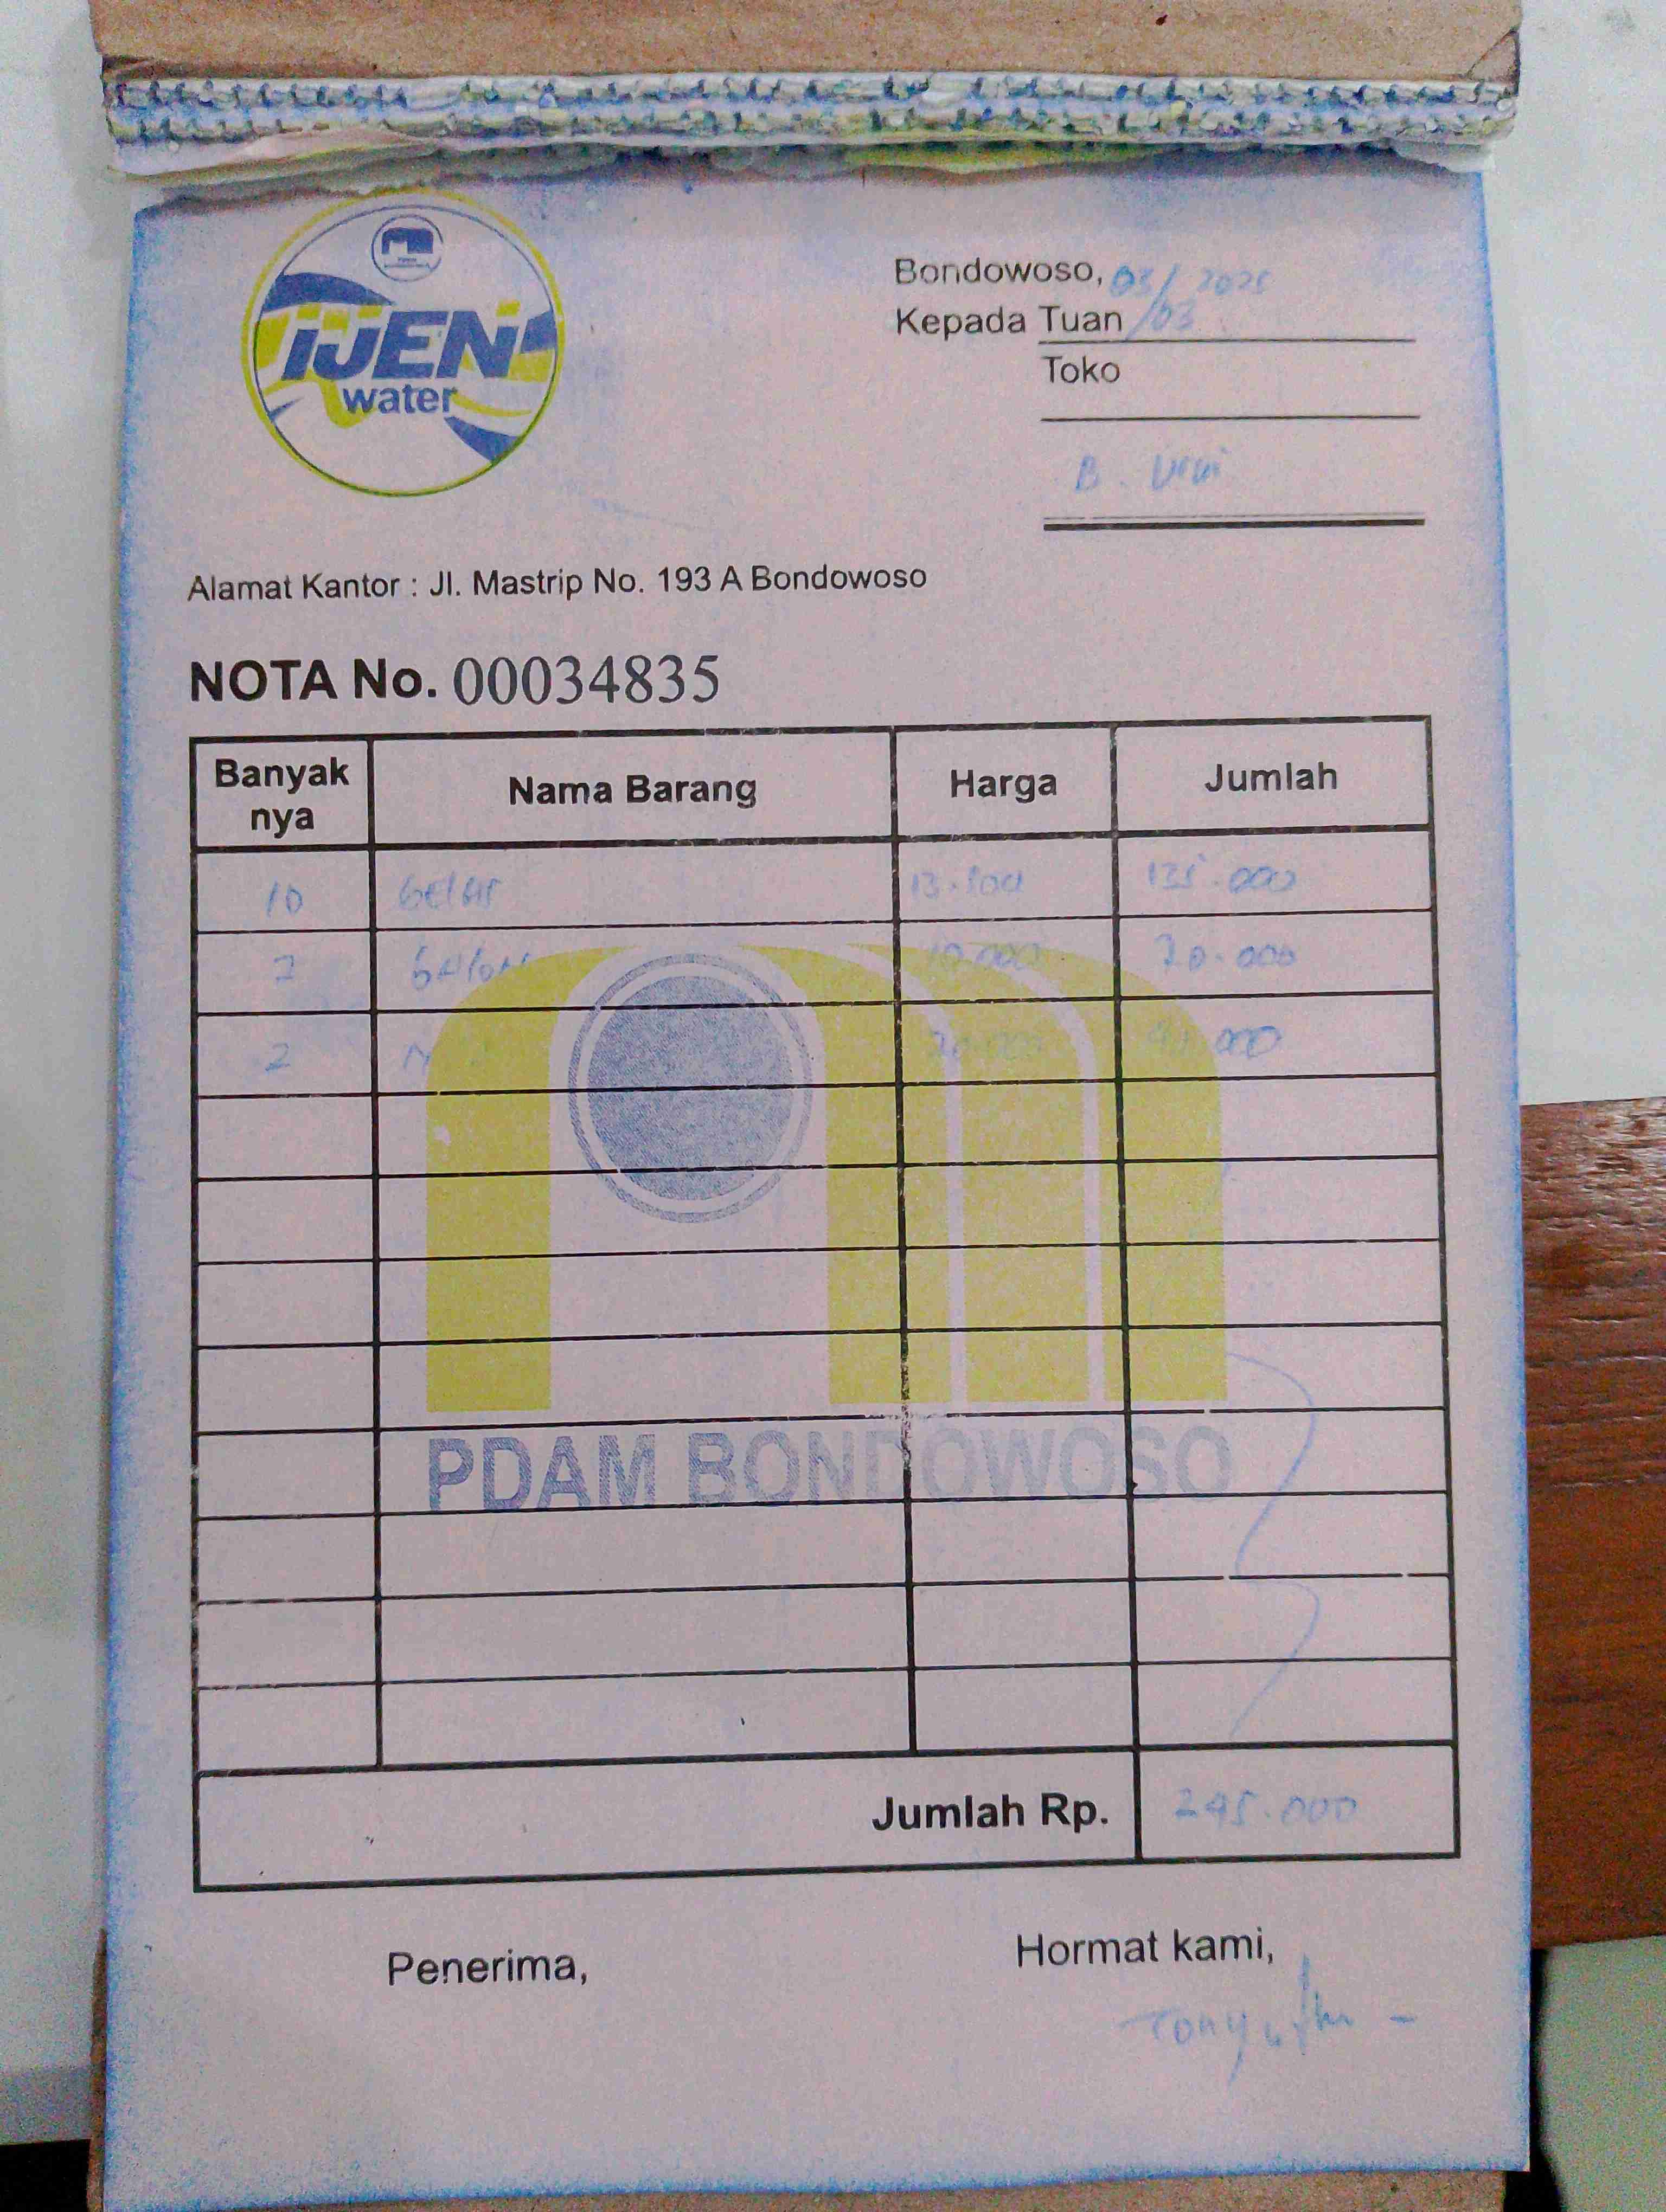 IJEN
water
Bondowoso, 03/03 2025
Kepada Tuan
Toko
B.
Alamat Kantor : Jl. Mastrip No. 193 A Bondowoso
NOTA No. 00034835
Banyak nya Nama Barang Harga Jumlah
10 GELAS 13.500 135.000
2 GALON 10.000 20.000
2 000
PDAM BONDOWOSO
Jumlah Rp. 245.000
Penerima, Hormat kami,